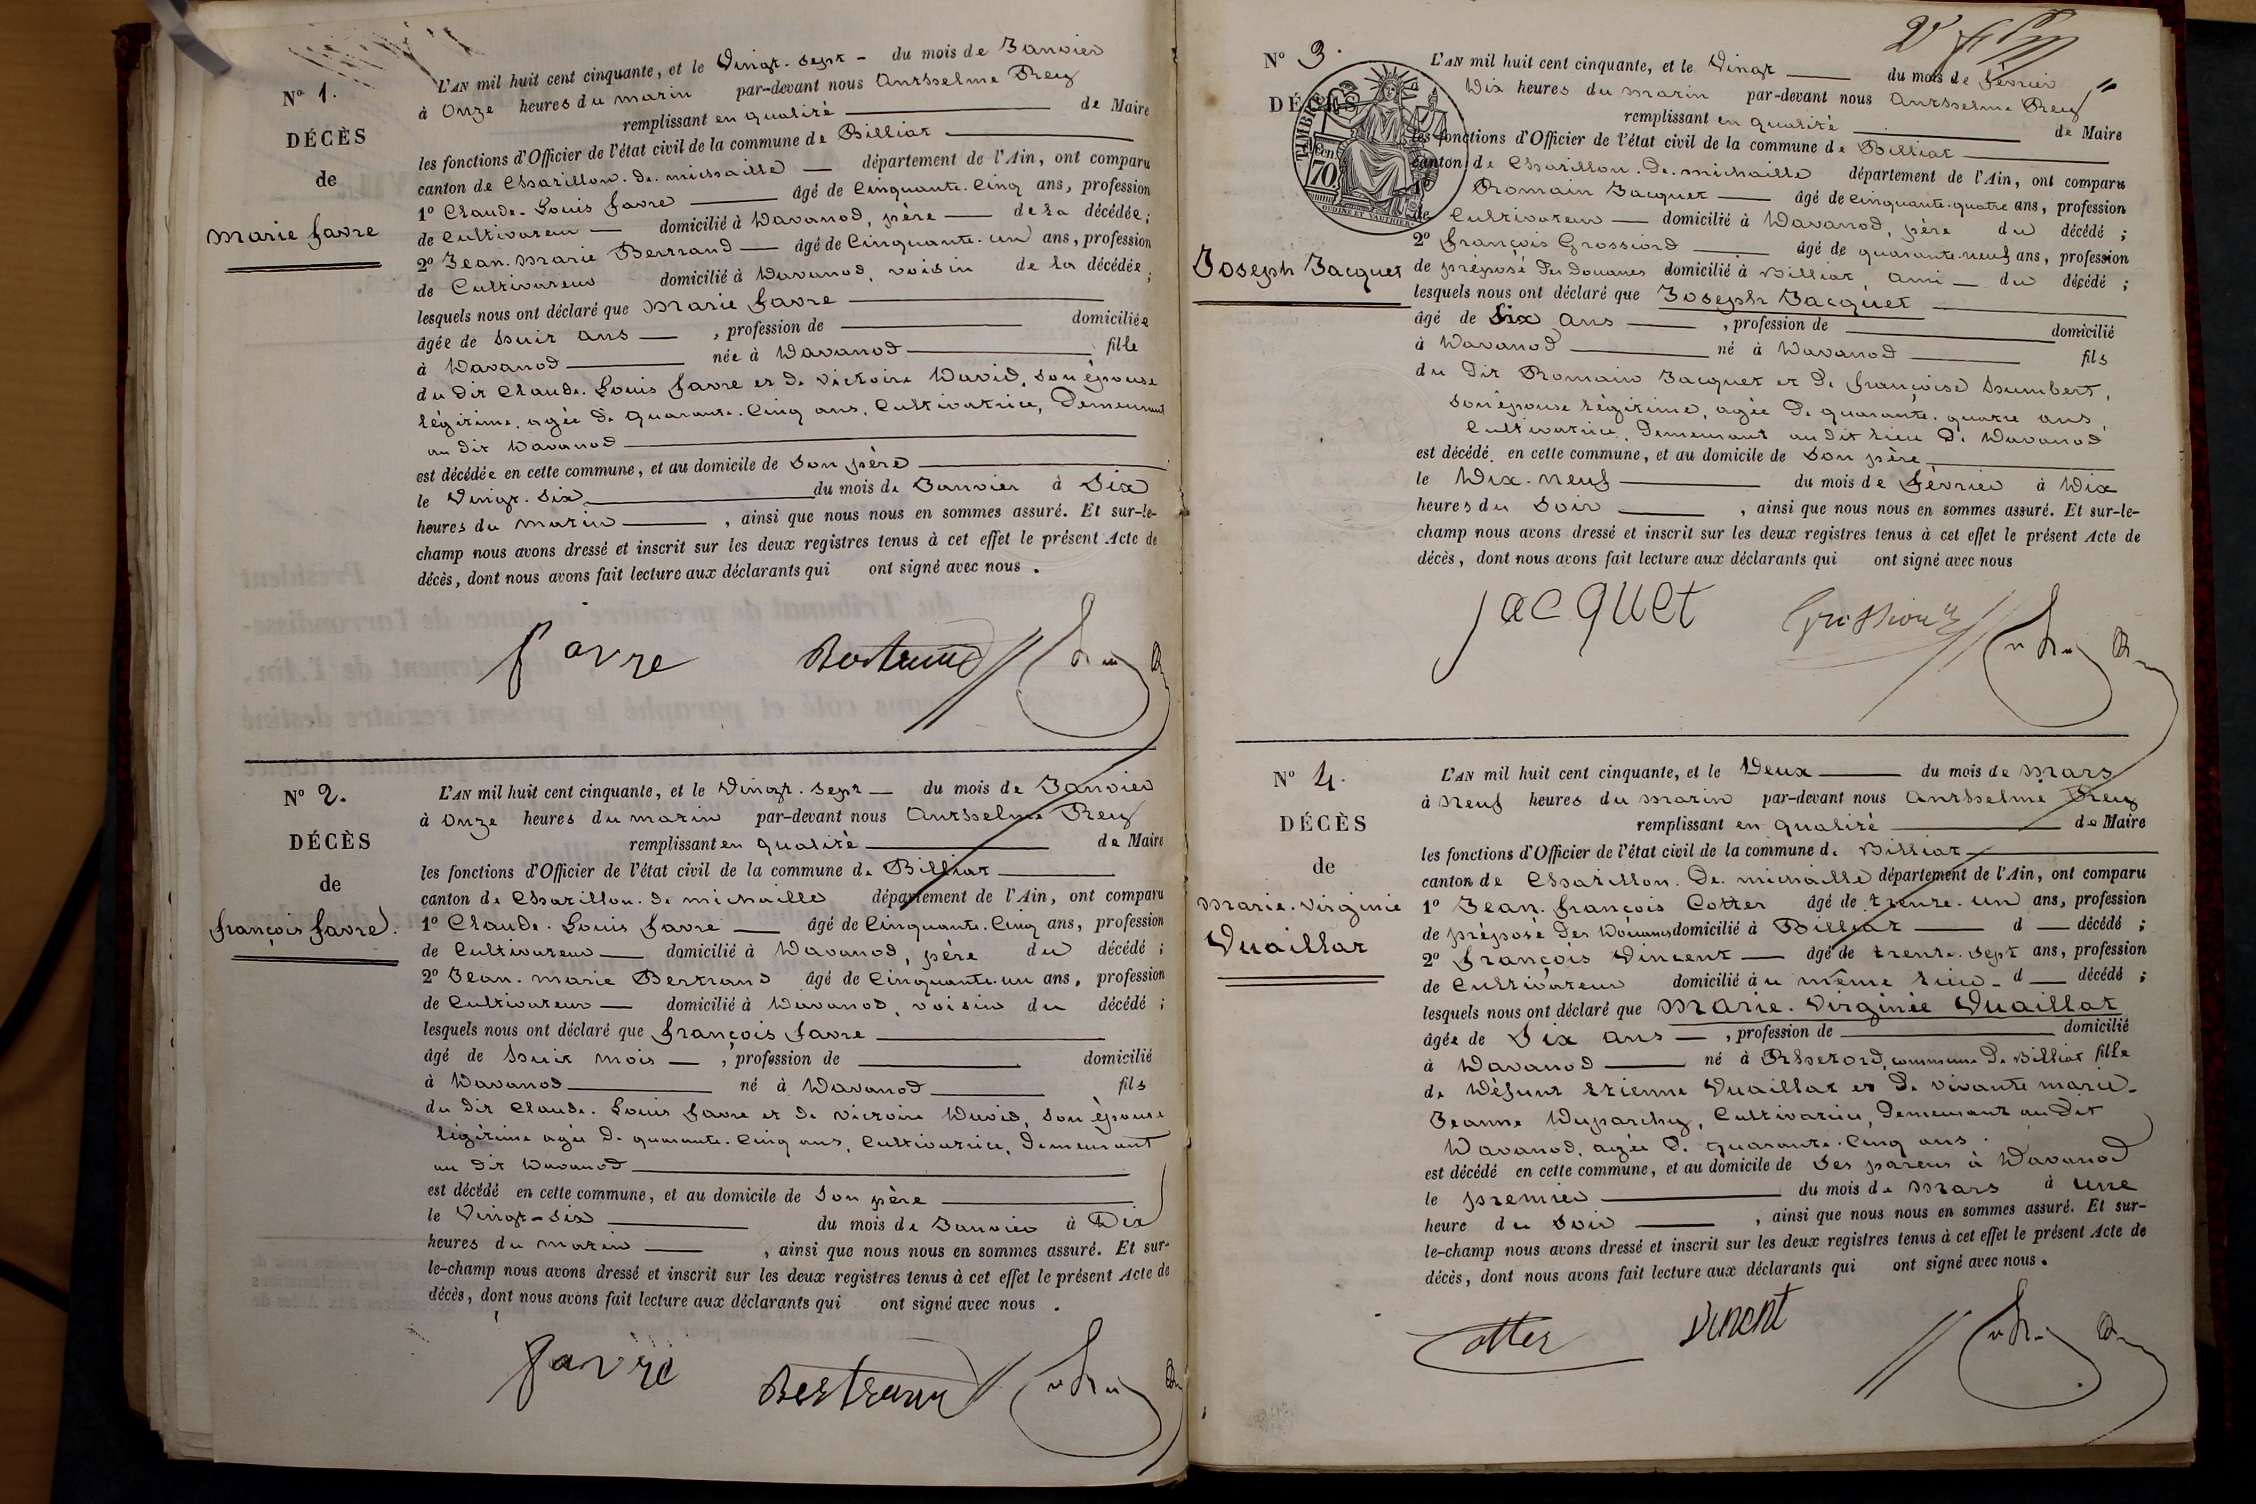 Nº 1.
DÉCÈS
de
Marie favre
L'AN mil huit cent cinquante, et le Vingt-sept du mois de Janvier
à Onze heures du matin par-devant nous Anthelme Rey
remplissant en qualité de Maire
les fonctions d'Officier de l'état civil de la commune de Billiat
canton de Chatillon-de-michaille département de l'Ain, ont comparu
1º Claude-Louis favre âgé de Cinquante-Cinq ans, profession
de Cultivateur domicilié à Davanod, père de la décédée;
2º Jean-Marie Bertrand âgé de Cinquante-un ans, profession
de Cultivateur domicilié à Davanod, voisin de la décédée;
lesquels nous ont déclaré que Marie favre
âgée de huit ans, profession de domiciliée
à Davanod née à Davanod fille
du dit Claude-Louis favre et de Victoire David, son épouse
légitime, agée de quarante-Cinq ans, Cultivatrice, Demeurant
au dit Davanod
est décédée en cette commune, et au domicile de son père
le Vingt-six du mois de Janvier à Six
heures du matin, ainsi que nous nous en sommes assuré. Et sur-le-
champ nous avons dressé et inscrit sur les deux registres tenus à cet effet le présent Acte de
décès, dont nous avons fait lecture aux déclarants qui ont signé avec nous.
favre Bertrand
Nº 2.
DÉCÈS
de
françois favre.
L'AN mil huit cent cinquante, et le Vingt-sept du mois de Janvier
à Onze heures du matin par-devant nous Anthelme Rey
remplissant en qualité de Maire
les fonctions d'Officier de l'état civil de la commune de Billiat
canton de Chatillon-de-michaille département de l'Ain, ont comparu
1º Claude-Louis favre âgé de Cinquante-Cinq ans, profession
de Cultivateur domicilié à Davanod, père du décédé;
2º Jean-marie Bertrand âgé de Cinquante-un ans, profession
de Cultivateur domicilié à Davanod, voisin du décédé;
lesquels nous ont déclaré que françois favre
âgé de huit mois, profession de domicilié
à Davanod né à Davanod fils
du dit Claude-Louis favre et de Victoire David, son épouse
légitime agée de quarante-Cinq ans, Cultivatrice, Demeurant
au dit Davanod
est décédé en cette commune, et au domicile de son père
le Vingt-six du mois de Janvier à Dix
heures du matin, ainsi que nous nous en sommes assuré. Et sur-
le-champ nous avons dressé et inscrit sur les deux registres tenus à cet effet le présent Acte de
décès, dont nous avons fait lecture aux déclarants qui ont signé avec nous.
favre Bertrand
Nº 3.
DÉCÈS
TIMBRE
70
OUDINÉ ET VAUTHIER
Joseph Jacquet
L'AN mil huit cent cinquante, et le Vingt du mois de février
Dix heures du matin par-devant nous Anthelme Rey
remplissant en qualité de Maire
les fonctions d'Officier de l'état civil de la commune de Billiat
canton de Chatillon-De-michaille département de l'Ain, ont comparu
1º Romain Jacquet âgé de Cinquante-quatre ans, profession
de Cultivateur domicilié à Davanod, père du décédé;
2º françois Grossiord âgé de quarante-neuf ans, profession
de préposé des douanes domicilié à Billiat, ami du décédé;
lesquels nous ont déclaré que Joseph Jacquet
âgé de Six ans, profession de domicilié
à Davanod né à Davanod fils
du dit Romain Jacquet et de françoise humbert,
son épouse légitime, agée de quarante-quatre ans,
Cultivatrice, Demeurant au dit lieu de Davanod
est décédé en cette commune, et au domicile de son père
le Dix-neuf du mois de février à Dix
heures du soir, ainsi que nous nous en sommes assuré. Et sur-le-
champ nous avons dressé et inscrit sur les deux registres tenus à cet effet le présent Acte de
décès, dont nous avons fait lecture aux déclarants qui ont signé avec nous
jacquet Grossiord
Nº 4.
DÉCÈS
de
Marie-Virginie
Vuaillat
L'AN mil huit cent cinquante, et le Deux du mois de Mars
à Neuf heures du matin par-devant nous Anthelme Rey
remplissant en qualité de Maire
les fonctions d'Officier de l'état civil de la commune de Billiat
canton de Chatillon-De-michaille département de l'Ain, ont comparu
1º Jean-françois Cotter âgé de trente-un ans, profession
de préposé des Douanes domicilié à Billiat d décédé;
2º françois Vincent âgé de trente-sept ans, profession
de Cultivateur domicilié au même lieu d décédé;
lesquels nous ont déclaré que Marie-Virginie Vuaillat
âgée de Dix ans, profession de domicilié
à Davanod né à Rhetord, commune de Billiat fille
de Défunt Etienne Vuaillat et de vivante marie-
Jeanne Duparchy, Cultivatrice, Demeurant au dit
Davanod, agée de quarante-Cinq ans.
est décédé en cette commune, et au domicile de ses parens à Davanod
le premier du mois de Mars à une
heure du soir, ainsi que nous nous en sommes assuré. Et sur-
le-champ nous avons dressé et inscrit sur les deux registres tenus à cet effet le présent Acte de
décès, dont nous avons fait lecture aux déclarants qui ont signé avec nous.
Cotter Vincent